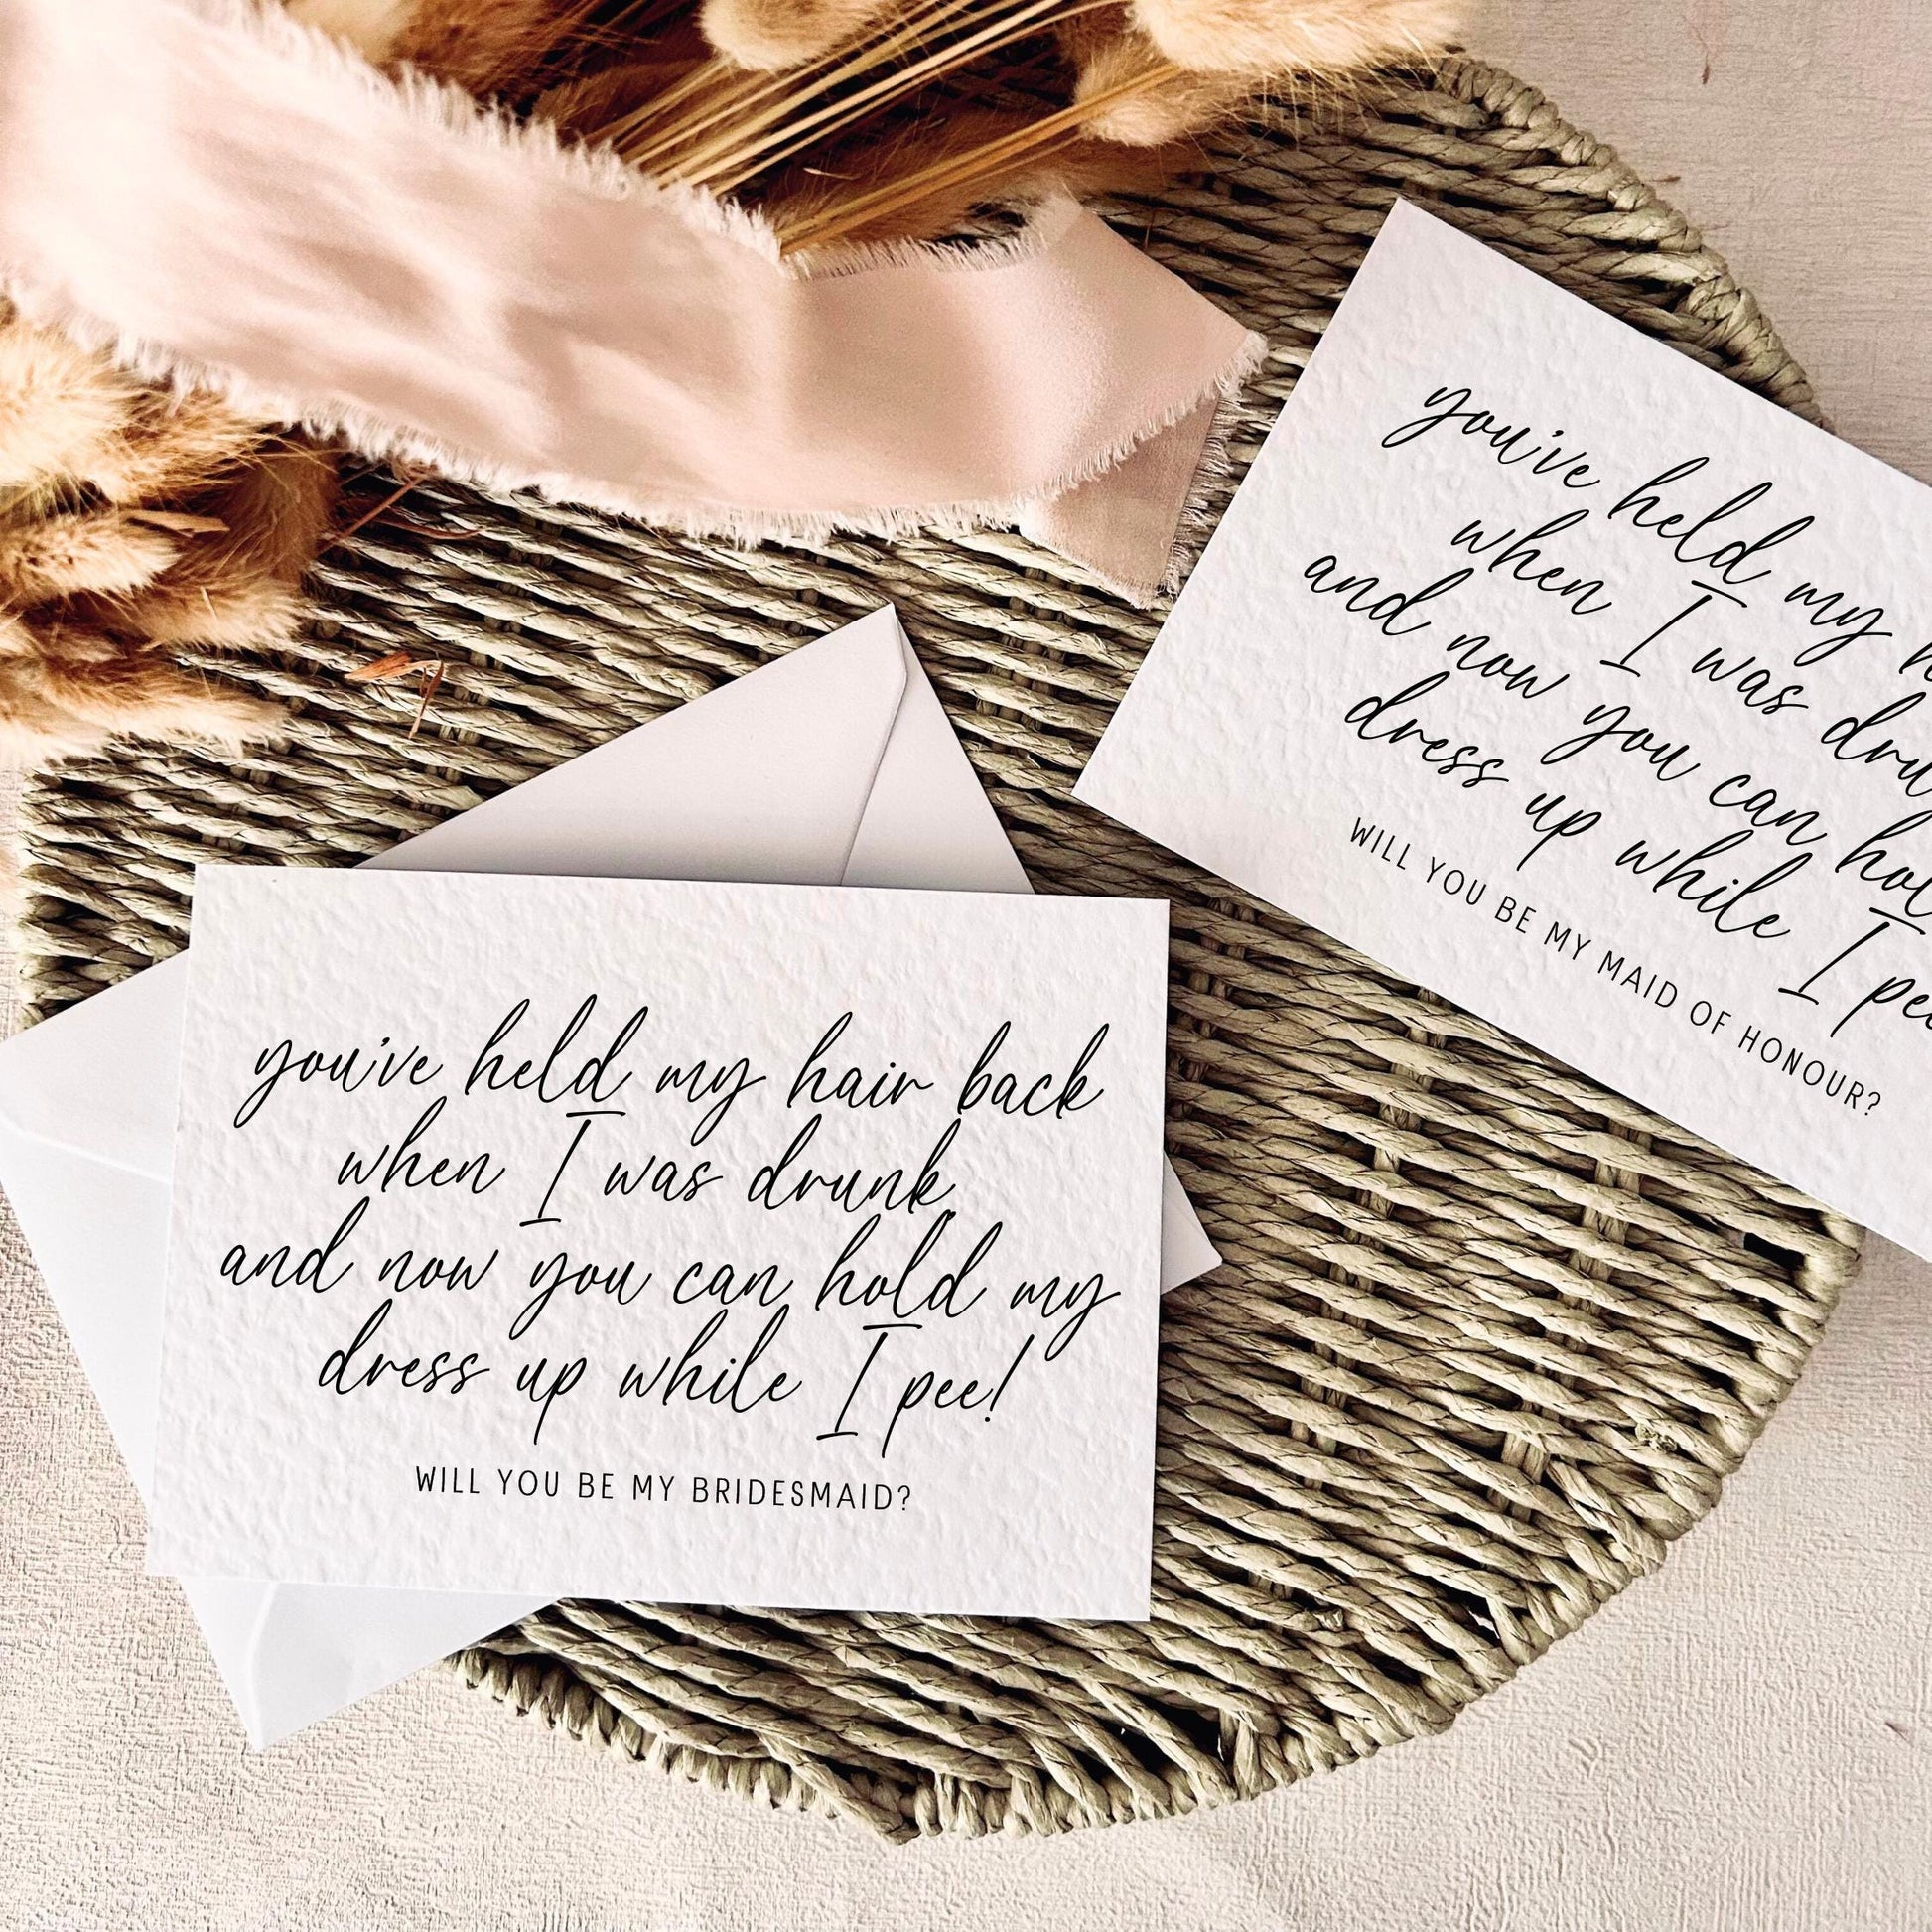 you've held my hair back
when I was drunk,
and now you can hold my
dress up while I pee!
WILL YOU BE MY BRIDESMAID?
you've held my
when I was
and now you can
dress up while I
WILL YOU BE MY MAID OF HONOUR?